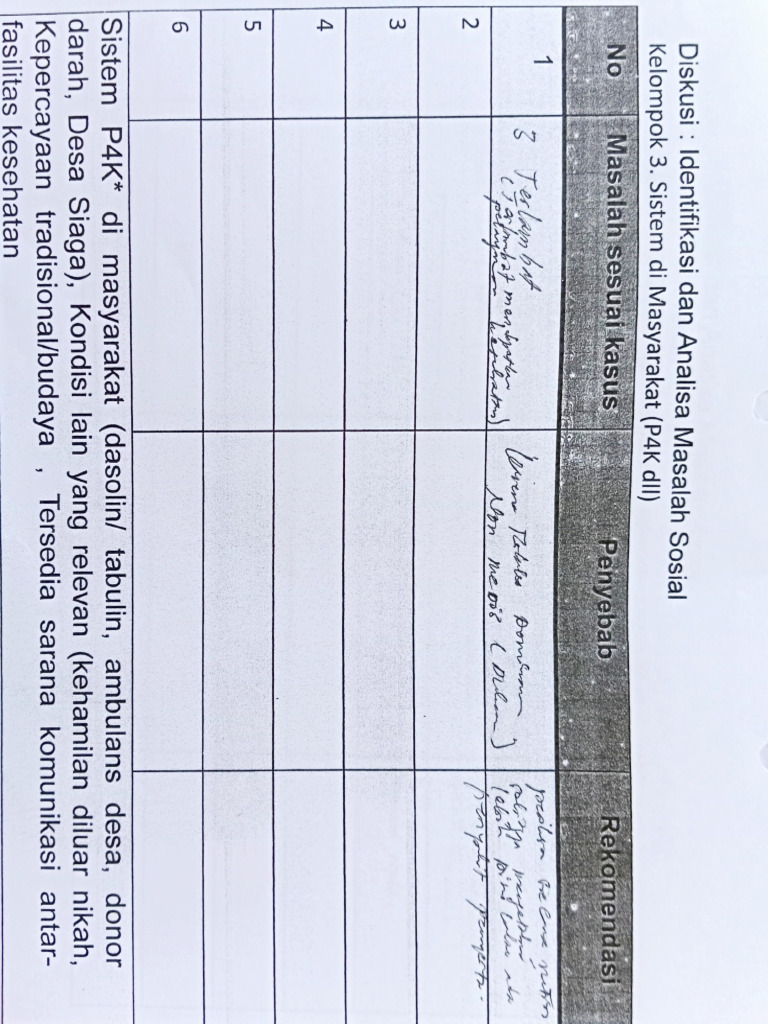 Diskusi : Identifikasi dan Analisa Masalah Sosial
Kelompok 3. Sistem di Masyarakat (P4K dll)
No Masalah sesuai kasus Penyebab Rekomendasi
1
3 Terlambat
(Terlambat
Non medis (Dukun)
penyakit penyerta.
2
3
4
5
6
Sistem P4K* di masyarakat (dasolin/ tabulin, ambulans desa, donor
darah, Desa Siaga), Kondisi lain yang relevan (kehamilan diluar nikah,
Kepercayaan tradisional/budaya , Tersedia sarana komunikasi antar-
fasilitas kesehatan